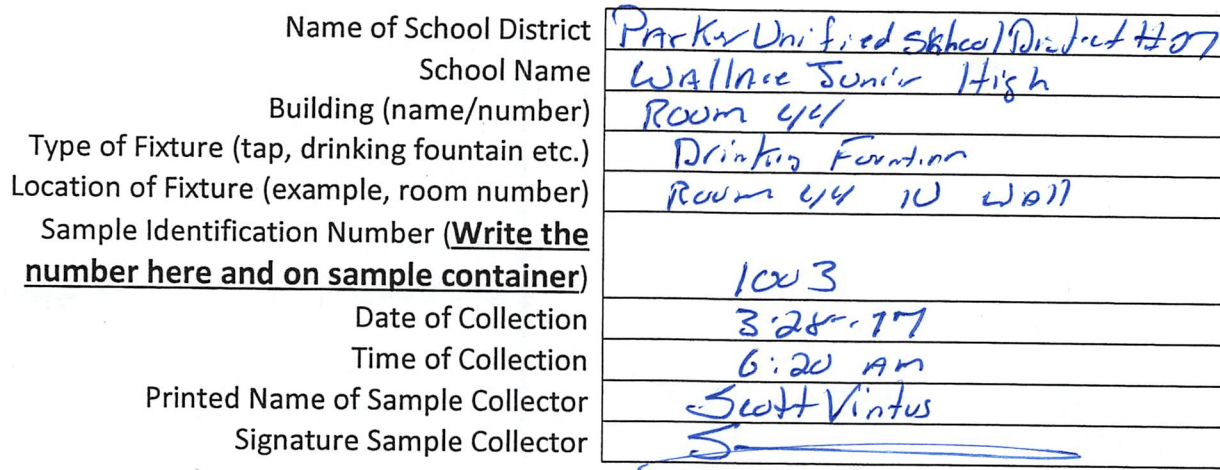 Name of School District Parker Unified School District #27
School Name Wallace Junior High
Building (name/number) Room 44
Type of Fixture (tap, drinking fountain etc.) Drinking Fountain
Location of Fixture (example, room number) Room 44 N Wall
Sample Identification Number (Write the
number here and on sample container) 1003
Date of Collection 3-28-17
Time of Collection 6:20 AM
Printed Name of Sample Collector Scott Vintus
Signature Sample Collector